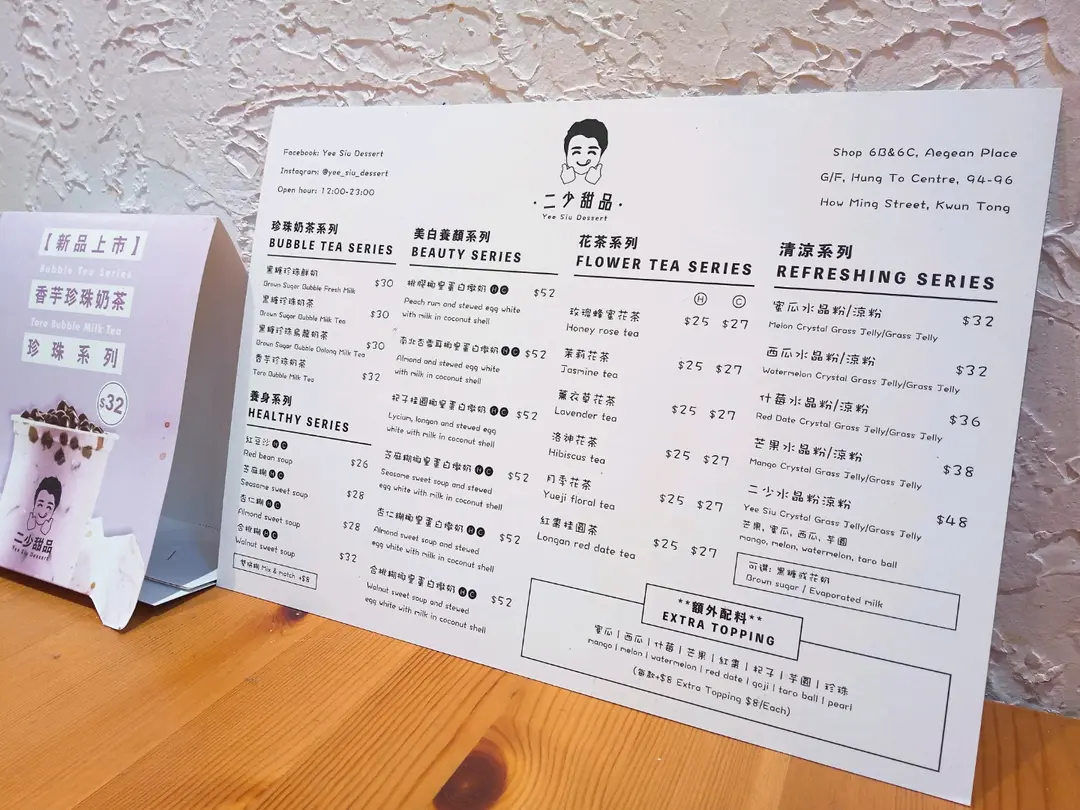 【新品上市】
Bubble Tea Series
香芋珍珠奶茶
Taro Bubble Milk Tea
珍珠系列
$32
二少甜品
Yee Siu Dessert
Facebook: Yee Siu Dessert
Instagram: @yee_siu_dessert
Open hour: 12:00-23:00
·二少甜品·
Yee Siu Dessert
Shop 6B&6C, Aegean Place
G/F, Hung To Centre, 94-96
How Ming Street, Kwun Tong
珍珠奶茶系列
BUBBLE TEA SERIES
黑糖珍珠鮮奶
Brown Sugar Bubble Fresh Milk $30
黑糖珍珠奶茶
Brown Sugar Bubble Milk Tea $30
黑糖珍珠烏龍奶茶
Brown Sugar Bubble Oolong Milk Tea $30
香芋珍珠奶茶
Taro Bubble Milk Tea $32
養身系列
HEALTHY SERIES
紅豆沙 H C
Red bean soup $26
芝麻糊 H C
Seasame sweet soup $28
杏仁糊 H C
Almond sweet soup $28
合桃糊 H C
Walnut sweet soup $32
雙拼糊 Mix & match +$8
美白養顏系列
BEAUTY SERIES
桃膠椰皇蛋白燉奶 H C $52
Peach rum and stewed egg white
with milk in coconut shell
南北杏雪耳椰皇蛋白燉奶 H C $52
Almond and stewed egg white
with milk in coconut shell
杞子桂圓椰皇蛋白燉奶 H C $52
Lycium, longan and stewed egg
white with milk in coconut shell
芝麻糊椰皇蛋白燉奶 H C $52
Seasame sweet soup and stewed
egg white with milk in coconut shell
杏仁糊椰皇蛋白燉奶 H C $52
Almond sweet soup and stewed
egg white with milk in coconut shell
合桃糊椰皇蛋白燉奶 H C $52
Walnut sweet soup and stewed
egg white with milk in coconut shell
花茶系列
FLOWER TEA SERIES
H C
玫瑰蜂蜜花茶 $25 $27
Honey rose tea
茉莉花茶 $25 $27
Jasmine tea
薰衣草花茶 $25 $27
Lavender tea
洛神花茶 $25 $27
Hibiscus tea
月季花茶 $25 $27
Yueji floral tea
紅棗桂圓茶 $25 $27
Longan red date tea
清涼系列
REFRESHING SERIES
蜜瓜水晶粉/涼粉 $32
Melon Crystal Grass Jelly/Grass Jelly
西瓜水晶粉/涼粉 $32
Watermelon Crystal Grass Jelly/Grass Jelly
什莓水晶粉/涼粉 $36
Red Date Crystal Grass Jelly/Grass Jelly
芒果水晶粉/涼粉 $38
Mango Crystal Grass Jelly/Grass Jelly
二少水晶粉涼粉 $48
Yee Siu Crystal Grass Jelly/Grass Jelly
芒果, 蜜瓜, 西瓜, 芋圓
mango, melon, watermelon, taro ball
可選: 黑糖或花奶
Brown sugar / Evaporated milk
**額外配料**
EXTRA TOPPING
蜜瓜 | 西瓜 | 什莓 | 芒果 | 紅棗 | 杞子 | 芋圓 | 珍珠
mango | melon | watermelon | red date | goji | taro ball | pearl
(每款+$8 Extra Topping $8/Each)